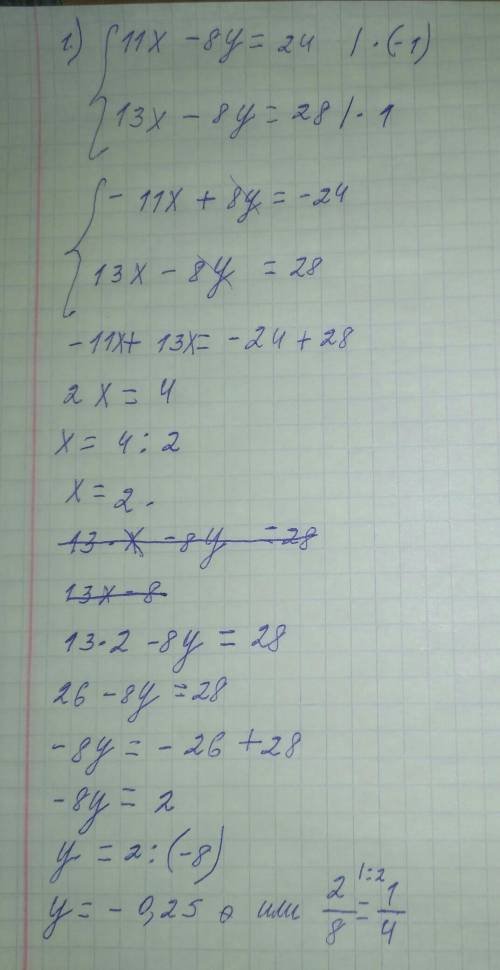 1.) 11x - 8y = 24 / · (-1)
13x - 8y = 28 / · 1
- 11x + 8y = -24
13x - 8y = 28
-11x + 13x = -24 + 28
2x = 4
x = 4 : 2
x = 2.
13 · x - 8y = 28
13x - 8
13 · 2 - 8y = 28
26 - 8y = 28
-8y = -26 + 28
-8y = 2
y = 2 : (-8)
y = -0,25 или 2/8 /:2 = 1/4